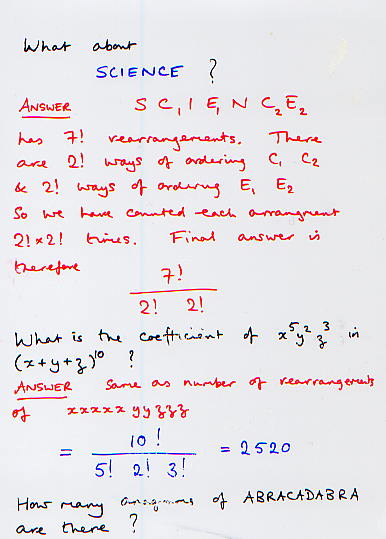 What about
SCIENCE ?
ANSWER S C₁ I E₁ N C₂ E₂
has 7! rearrangements. There
are 2! ways of ordering C₁ C₂
& 2! ways of ordering E₁ E₂
So we have counted each arrangment
2! × 2! times. Final answer is
therefore
7!
2! 2!
What is the coefficient of x⁵y²z³ in
(x+y+z)¹⁰ ?
ANSWER Same as number of rearrangements
of xxxxx yy zzz
= 10! / 5! 2! 3! = 2520
How many anagrams of ABRACADABRA
are there ?